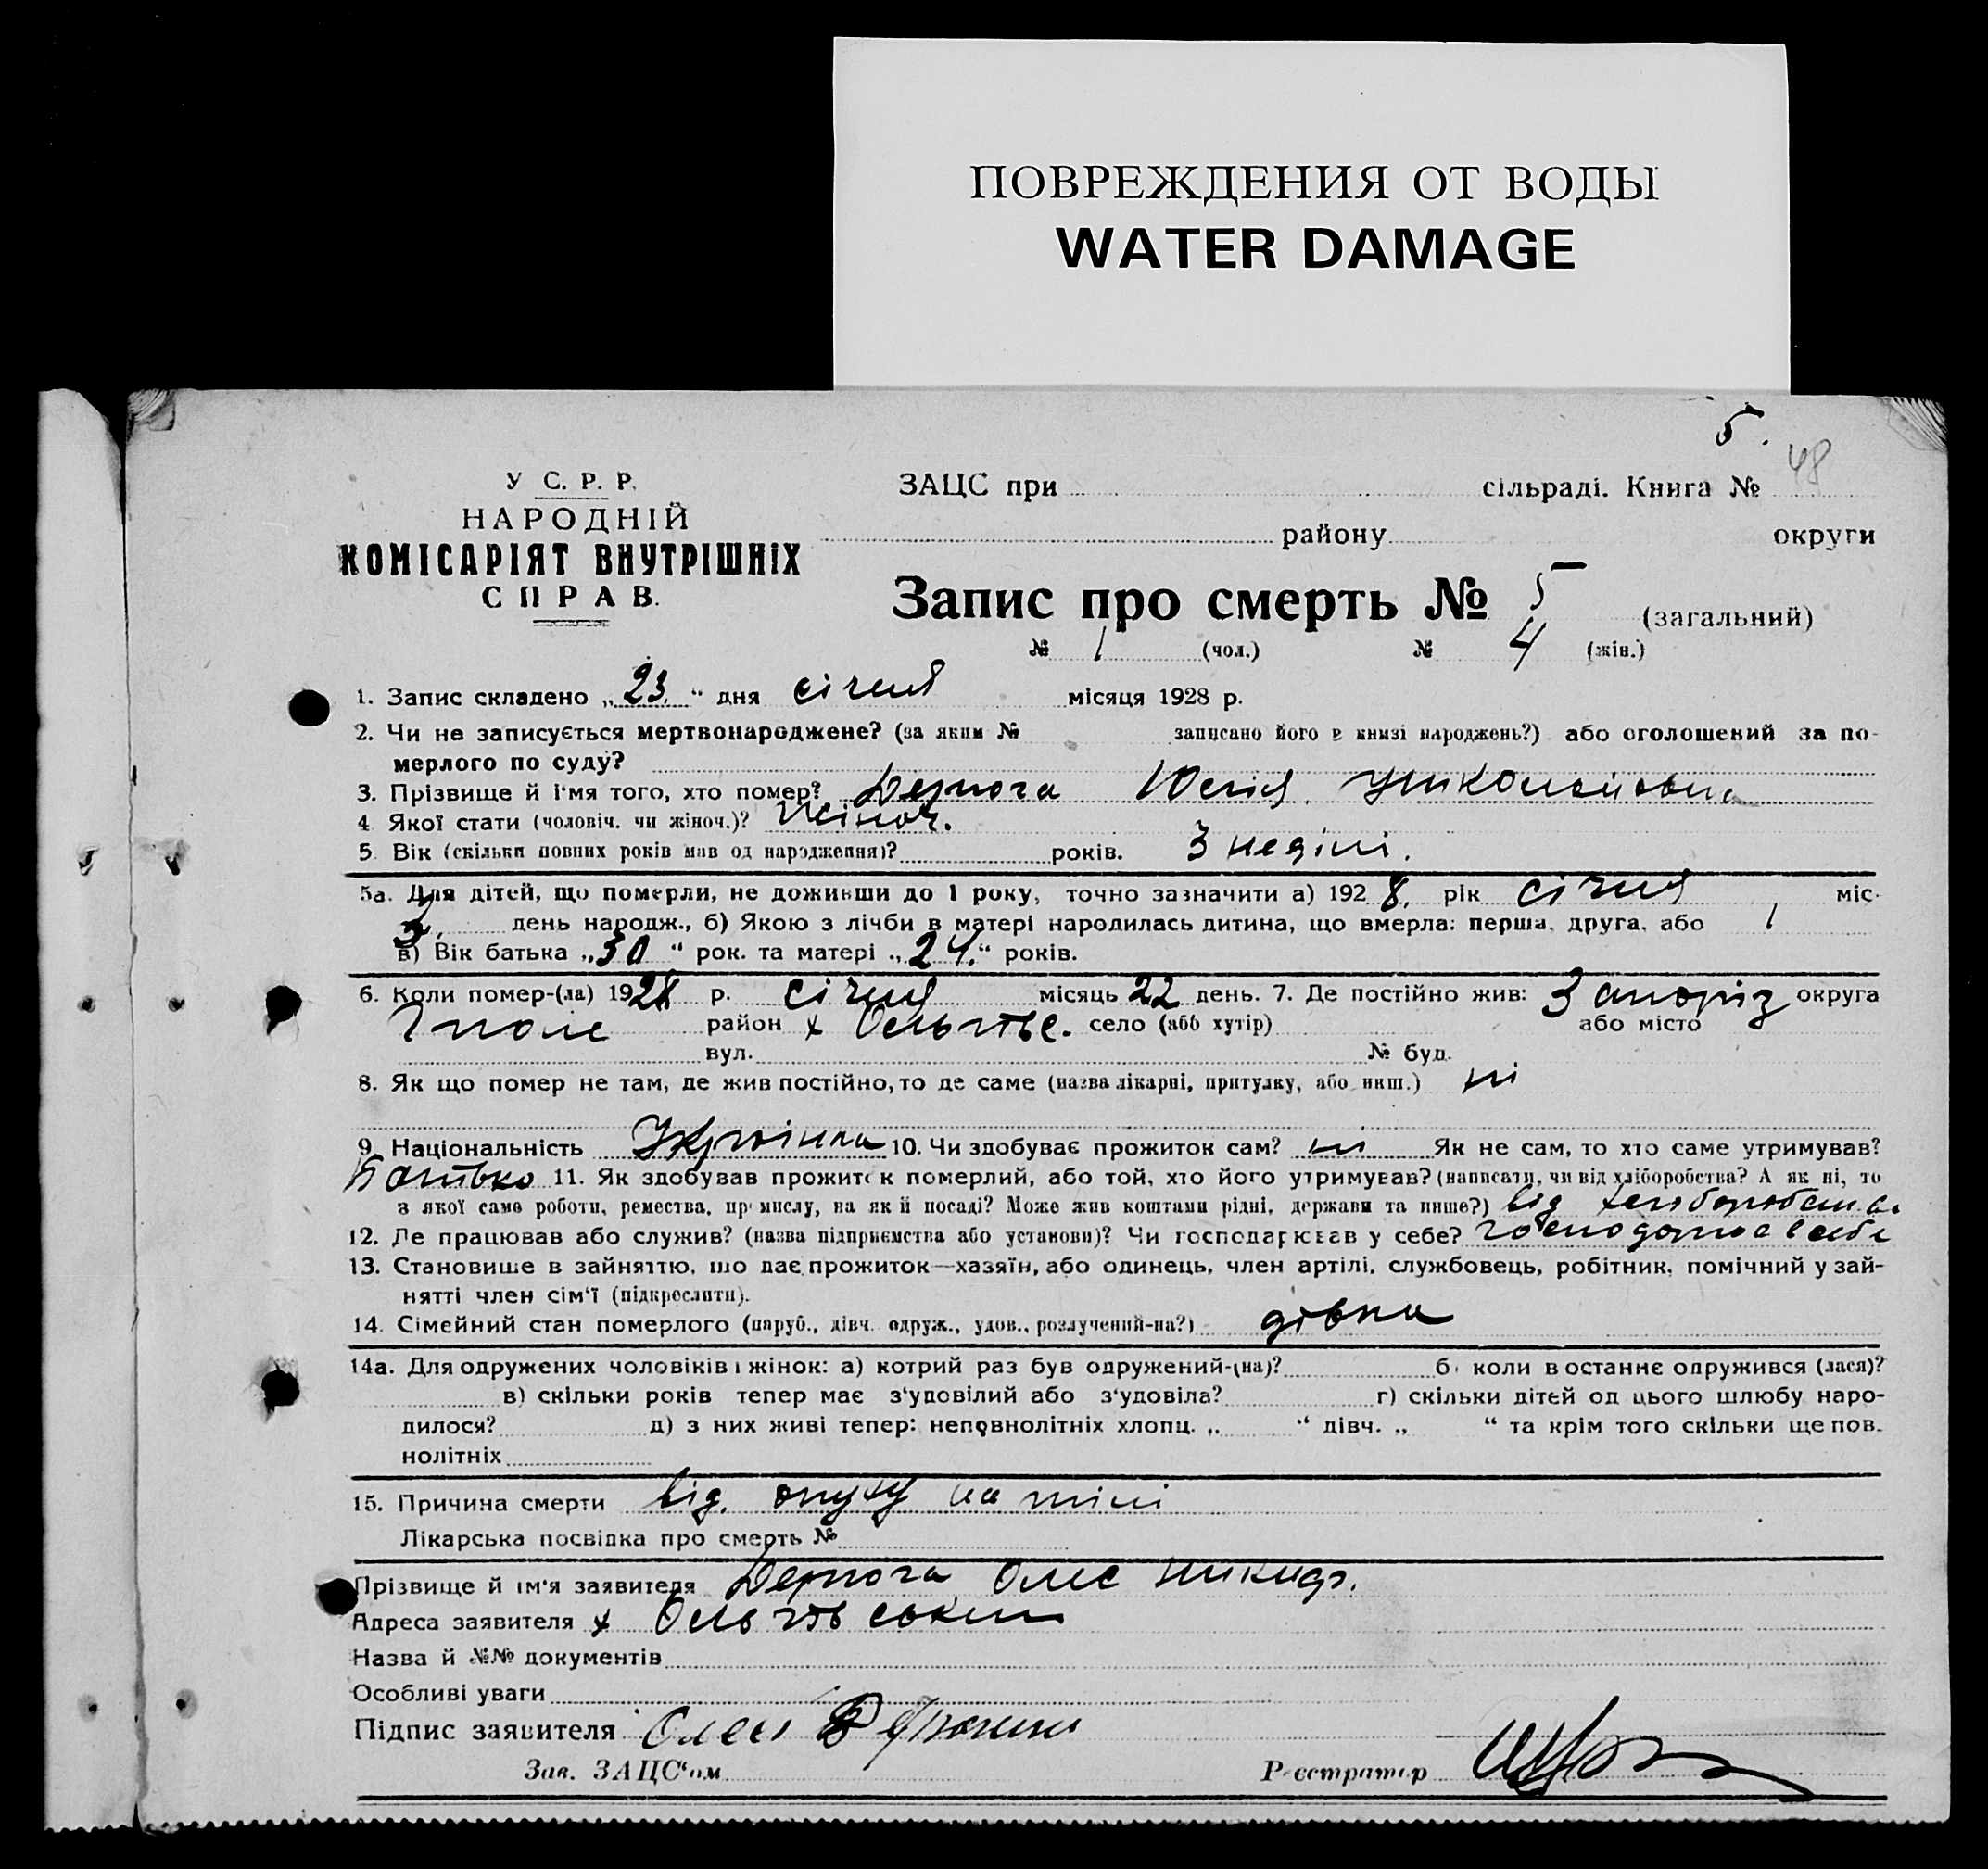 ПОВРЕЖДЕНИЯ ОТ ВОДЫ
WATER DAMAGE
5.
48
У С. Р. Р.
НАРОДНІЙ
КОМІСАРІЯТ ВНУТРІШНІХ
СПРАВ.
ЗАЦС при сільраді. Книга №
району округи
Запис про смерть № 5 (загальний)
№ 1 (чол.) № 4 (жін.)
1. Запис складено „23“ дня січня місяця 1928 р.
2. Чи не записується мертвонароджене? (за яким № записано його в книзі народжень?) або оголошений за по-
мерлого по суду?
3. Прізвище й ім'я того, хто помер? Юлія
4 Якої стати (чоловіч. чи жіноч.)? Жіноч.
5. Вік (скільки повних років мав од народження)? років. 3 неділі.
5а. Для дітей, що померли, не доживши до 1 року, точно зазначити а) 1928. рік січня міс.
3. день народж., б) Якою з лічби в матері народилась дитина, що вмерла: перша, друга, або 1
в) Вік батька „30“ рок. та матері „24.“ років.
6. Коли помер-(ла) 1928 р. січня місяць 22 день. 7. Де постійно жив: Запоріз округа
район х Ольгівс. село (або хутір) або місто
вул. № буд.
8. Як що помер не там, де жив постійно, то де саме (назва лікарні, притулку, або инш.) ні
9. Національність Українка 10. Чи здобуває прожиток сам? ні Як не сам, то хто саме утримував?
Батько 11. Як здобував прожиток померлий, або той, хто його утримував? (написати, чи від хліборобства? А як ні, то
з якої саме роботи, ремества, промислу, на як й посаді? Може жив коштами рідні, держави та инше?) від
12. Де працював або служив? (назва підприємства або установи)? Чи господарював у себе?
13. Становише в зайняттю, що дає прожиток—хазяїн, або одинець, член артілі, службовець, робітник, помічний у зай-
нятті член сім'ї (підкреслити).
14. Сімейний стан померлого (паруб., дівч. одруж., удов., розлучений-на?) дівка
14а. Для одружених чоловіків і жінок: а) котрий раз був одружений-(на)? б) коли востаннє одружився (лася)?
в) скільки років тепер має з'удовілий або з'удовіла? г) скільки дітей од цього шлюбу наро-
дилося? д) з них живі тепер: неповнолітніх хлопц. „ “ дівч. „ “ та крім того скільки ще пов.
нолітніх
15. Причина смерти від. опуху на тілі
Лікарська посвідка про смерть №
Прізвище й ім'я заявителя
Адреса заявителя х Ольгівський
Назва й №№ документів
Особливі уваги
Підпис заявителя
Зав. ЗАЦС'ом Реєстратор